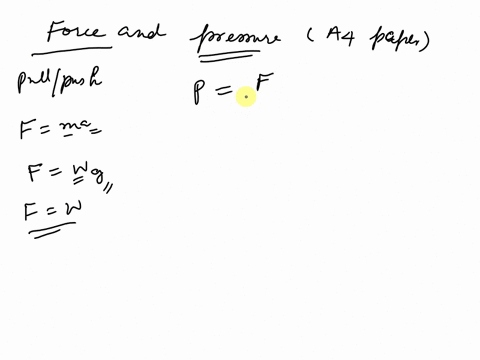 Force and pressure (A4 paper)
pull/push
P = F
F = ma
F = Wg
F = W